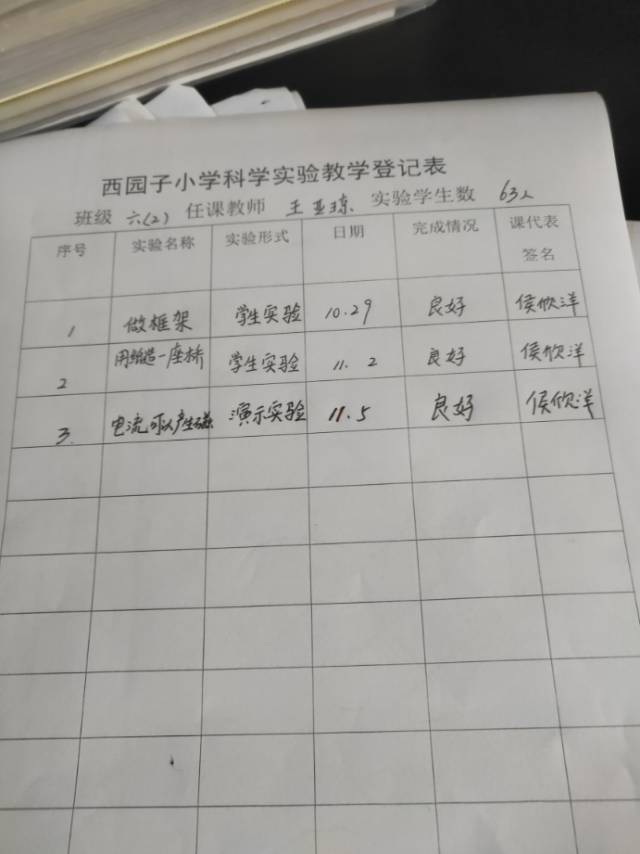 西园子小学科学实验教学登记表
班级 六(2) 任课教师 王亚琼 实验学生数 63人
序号 实验名称 实验形式 日期 完成情况 课代表签名
1 做框架 学生实验 10.29 良好 侯欣洋
2 用纸造一座桥 学生实验 11.2 良好 侯欣洋
3 电流可以产生磁 演示实验 11.5 良好 侯欣洋